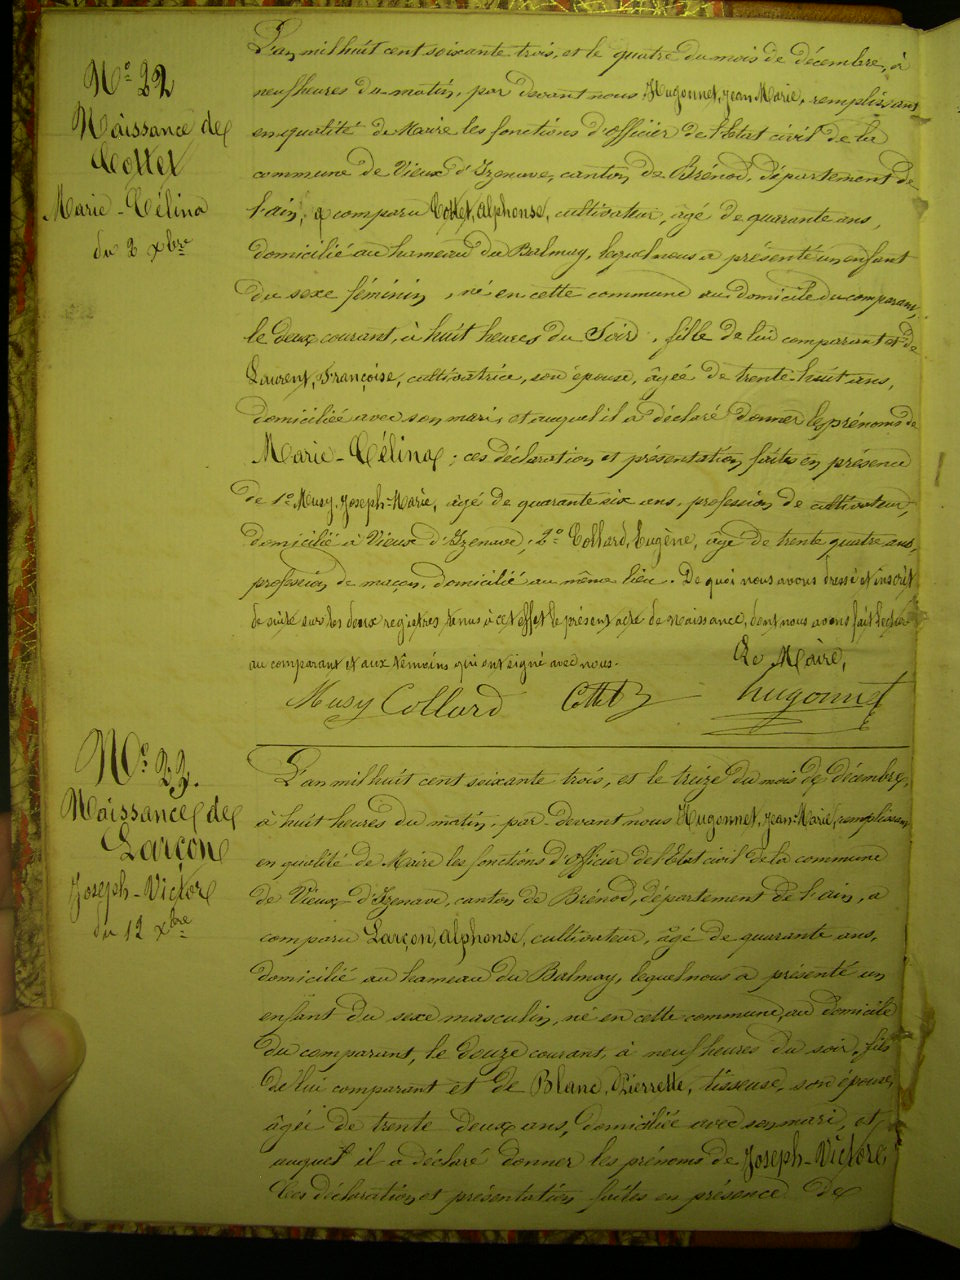 N.º 22
Naissance de
Cottet
Marie-Célina
du 2 xbre
L'an mil huit cent soixante trois, et le quatre du mois de décembre, à
neuf heures du matin, par devant nous Hugonnet, Jean Marie, remplissant
en qualité de Maire les fonctions d'officier de l'Etat civil de la
commune de Vieux d'Izenave, canton de Brénod, département de
l'ain, a comparu Cottet, Alphonse, cultivateur, âgé de quarante ans,
domicilié au hameau du Balmay, lequel nous a présenté un enfant
du sexe féminin, né en cette commune au domicile du comparant,
le deux courant, à huit heures du soir, fille de lui comparant et de
Laurent, Françoise, cultivatrice, son épouse, âgée de trente-huit ans,
domiciliée avec son mari, et auquel il a déclaré donner les prénoms de
Marie-Célina ; ces déclaration et présentation faites en présence
de 1º Musy, Joseph-Marie, âgé de quarante six ans, profession de cultivateur,
domicilié à Vieux d'Izenave, 2º Collard, Eugène, âgé de trente quatre ans,
profession de maçon, domicilié au même lieu. De quoi nous avons dressé et inscrit
de suite sur les deux registres tenus à cet effet le présent acte de naissance, dont nous avons fait lecture
au comparant et aux témoins qui ont signé avec nous.
Le Maire,
Musy Collard Cottet hugonnet
N.º 23.
Naissance de
Larçon
Joseph-Victor
du 12 xbre
L'an mil huit cent soixante trois, et le treize du mois de décembre,
à huit heures du matin, par devant nous Hugonnet, Jean-Marie, remplissant
en qualité de Maire les fonctions d'officier de l'Etat civil de la commune
de Vieux-d'Izenave, canton de Brénod, département de l'ain, a
comparu Larçon, Alphonse, cultivateur, âgé de quarante ans,
domicilié au hameau du Balmay, lequel nous a présenté un
enfant du sexe masculin, né en cette commune, au domicile
du comparant, le douze courant, à neuf heures du soir, fils
de lui comparant et de Blanc, Pierrette, tisseuse, son épouse,
âgée de trente deux ans, domiciliée avec son mari, et
auquel il a déclaré donner les prénoms de Joseph-Victor,
Ces déclaration et présentation faites en présence de